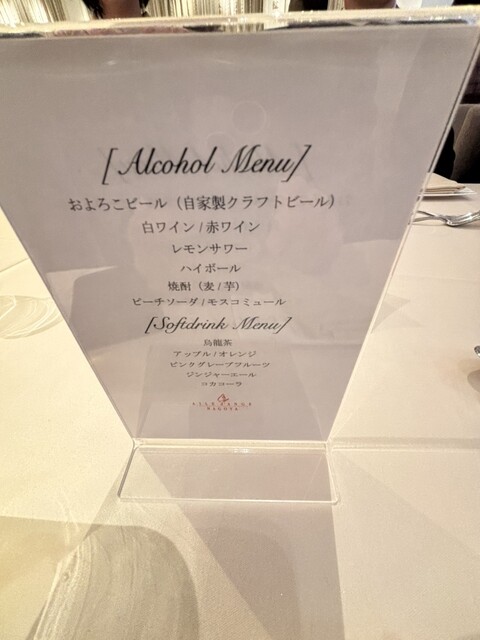 [Alcohol Menu]
およろこビール（自家製クラフトビール）
白ワイン / 赤ワイン
レモンサワー
ハイボール
焼酎（麦 / 芋）
ピーチソーダ / モスコミュール
[Softdrink Menu]
烏龍茶
アップル / オレンジ
ピンクグレープフルーツ
ジンジャーエール
コカコーラ
NAGOYA